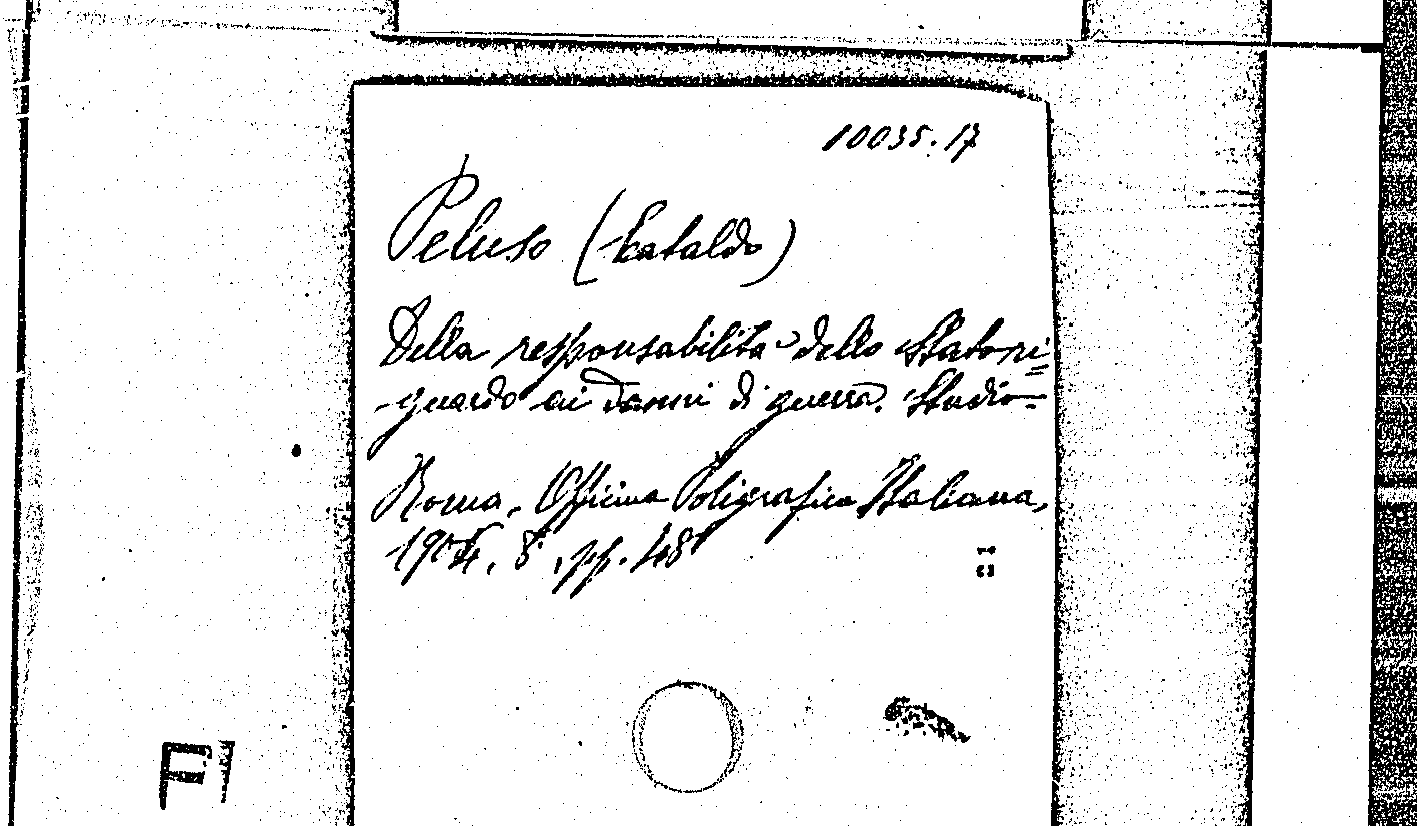 10035.17
Peluso (Cataldo)
Della responsabilità dello Stato ri=
guardo ai danni di guerra. Studio=
Roma, Officina Poligrafica Italiana,
1904, 8°, pp. 48